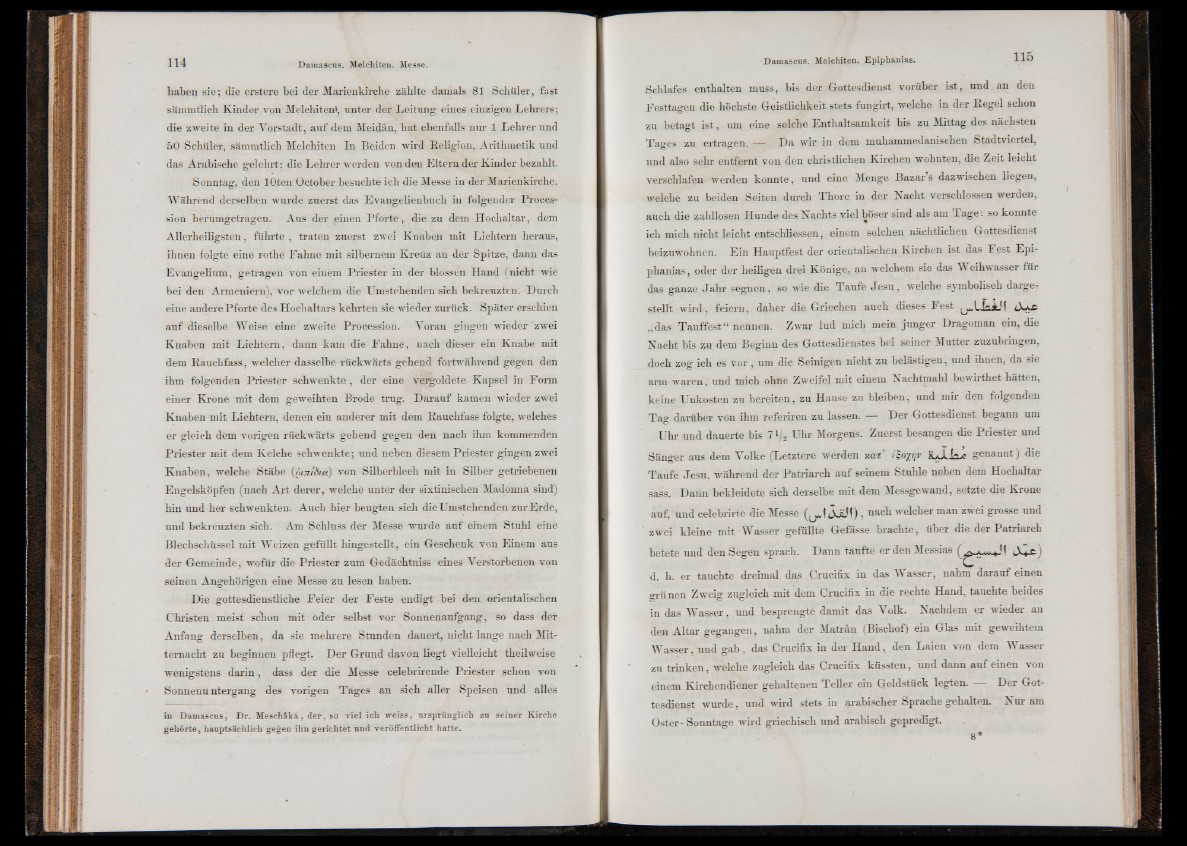 114
Damascus. Melchiten. Messe.
haben sie; die erstere bei der Marienkirche zählte damals 81 Schüler, fast
sämmtlich Kinder von Melchiten, unter der Leitung eines einzigen Lehrers;
die zweite in der Vorstadt, auf dem Meidân, hat ebenfalls nur 1 Lehrer und
50 Schüler, sämmtlich Melchiten In Beiden wird Religion, Arithmetik und
das Arabische gelehrt; die Lehrer werden von den Eltern der Kinder bezahlt.
Sonntag, den 10ten October besuchte ich die Messe in der Marienkirche.
Während derselben wurde zuerst das Evangelienbuch in folgender Proces-
sion herumgetragen. Aus der einen Pforte, die zu dem Hochaltar, dem
Allerheiligsten, führte, traten zuerst zwei Knaben mit Lichtern heraus,
ihnen folgte eine rothe Fahne mit silbernem Kreuz an der Spitze, dann das
Evangelium, getragen von einem Priester in der blossen Hand (nicht wie
bei den Armeniern), vor welchem die Umstehenden sich bekreuzten. Durch
eine andere Pforte des Hochaltars kehrten sie wieder zurück. Später erschien
auf dieselbe Weise eine zweite Procession. Voran gingen wieder zwei
Knaben mit Lichtern, dann kam die Fahne, nach dieser ein Knabe mit
dem Rauchfass, welcher dasselbe rückwärts gehend fortwährend gegen den
ihm folgenden Priester schwenkte, der eine vergoldete Kapsel in Form
einer Krone mit dem geweihten Brode trug. Darauf kamen wieder zwei
Knaben mit Lichtern, denen ein anderer mit dem Rauchfass folgte, welches
er gleich dem vorigen rückwärts gehend gegen den nach ihm kommenden
Priester mit dem Kelche schwenkte; und neben diesem Priester gingen zwei
Knaben, welche Stäbe (ῥιπίδια) von Silberblech mit in Silber getriebenen
Engelsköpfen (nach Art derer, welche unter der sixtinischen Madonna sind)
hin und her schwenkten. Auch hier beugten sich die Umstehenden zur Erde,
und bekreuzten sich. Am Schluss der Messe wurde auf einem Stuhl eine
Blechschüssel mit Weizen gefüllt hingestellt, ein Geschenk von Einem aus
der Gemeinde, wofür die Priester zum Gedächtniss eines Verstorbenen von
seinen Angehörigen eine Messe zu lesen haben.
Die gottesdienstliche Feier der Feste endigt bei den orientalischen
Christen meist schon mit oder selbst vor Sonnenaufgang, so dass der
Anfang derselben, da sie mehrere Stunden dauert, nicht lange nach Mit-
ternacht zu beginnen pflegt. Der Grund davon liegt vielleicht theilweise
wenigstens darin, dass der die Messe celebrirende Priester schon von
Sonnenuntergang des vorigen Tages an sich aller Speisen und alles
in Damascus, Dr. Meschâka, der, so viel ich weiss, ursprünglich zu seiner Kirche
gehörte, hauptsächlich gegen ihn gerichtet und veröffentlicht hatte.
Damascus. Melchiten. Epiphanias.
115
Schlafes enthalten muss, bis der Gottesdienst vorüber ist, und an den
Festtagen die höchste Geistlichkeit stets fungirt, welche in der Regel schon
zu betagt ist, um eine solche Enthaltsamkeit bis zu Mittag des nächsten
Tages zu ertragen. — Da wir in dem muhammedanischen Stadtviertel,
und also sehr entfernt von den christlichen Kirchen wohnten, die Zeit leicht
verschlafen werden konnte, und eine Menge Bazar's dazwischen liegen,
welche zu beiden Seiten durch Thore in der Nacht verschlossen werden,
auch die zahllosen Hunde des Nachts viel böser sind als am Tage: so konnte
ich mich nicht leicht entschliessen, einem solchen nächtlichen Gottesdienst
beizuwohnen. Ein Hauptfest der orientalischen Kirchen ist das Fest Epi-
phanias, oder der heiligen drei Könige, an welchem sie das Weihwasser für
das ganze Jahr segnen, so wie die Taufe Jesu, welche symbolisch darge-
stellt wird, feiern, daher die Griechen auch dieses Fest عيد الغطاس
„das Tauffest“ nennen. Zwar lud mich mein junger Dragoman ein, die
Nacht bis zu dem Beginn des Gottesdienstes bei seiner Mutter zuzubringen,
doch zog ich es vor, um die Seinigen nicht zu belästigen, und ihnen, da sie
arm waren, und mich ohne Zweifel mit einem Nachtmahl bewirthet hätten,
keine Unkosten zu bereiten, zu Hause zu bleiben, und mir den folgenden
Tag darüber von ihm referiren zu lassen. — Der Gottesdienst begann um
Uhr und dauerte bis 7½ Uhr Morgens. Zuerst besangen die Priester und
Sänger aus dem Volke (Letztere werden κατ' ἐξοχήν genannt) die
Taufe Jesu, während der Patriarch auf seinem Stuhle neben dem Hochaltar
sass. Dann bekleidete sich derselbe mit dem Messgewand, setzte die Krone
auf, und celebrirte die Messe (القداس), nach welcher man zwei grosse und
zwei kleine mit Wasser gefüllte Gefässe brachte, über die der Patriarch
betete und den Segen sprach. Dann taufte er den Messias (عمّد المسيح)
d. h. er tauchte dreimal das Crucifix in das Wasser, nahm darauf einen
grünen Zweig zugleich mit dem Crucifix in die rechte Hand, tauchte beides
in das Wasser, und besprengte damit das Volk. Nachdem er wieder an
den Altar gegangen, nahm der Matrân (Bischof) ein Glas mit geweihtem
Wasser, und gab, das Crucifix in der Hand, den Laien von dem Wasser
zu trinken, welche zugleich das Crucifix küssten, und dann auf einen von
einem Kirchendiener gehaltenen Teller ein Geldstück legten. — Der Got-
tesdienst wurde, und wird stets in arabischer Sprache gehalten. Nur am
Oster-Sonntage wird griechisch und arabisch gepredigt.
8*